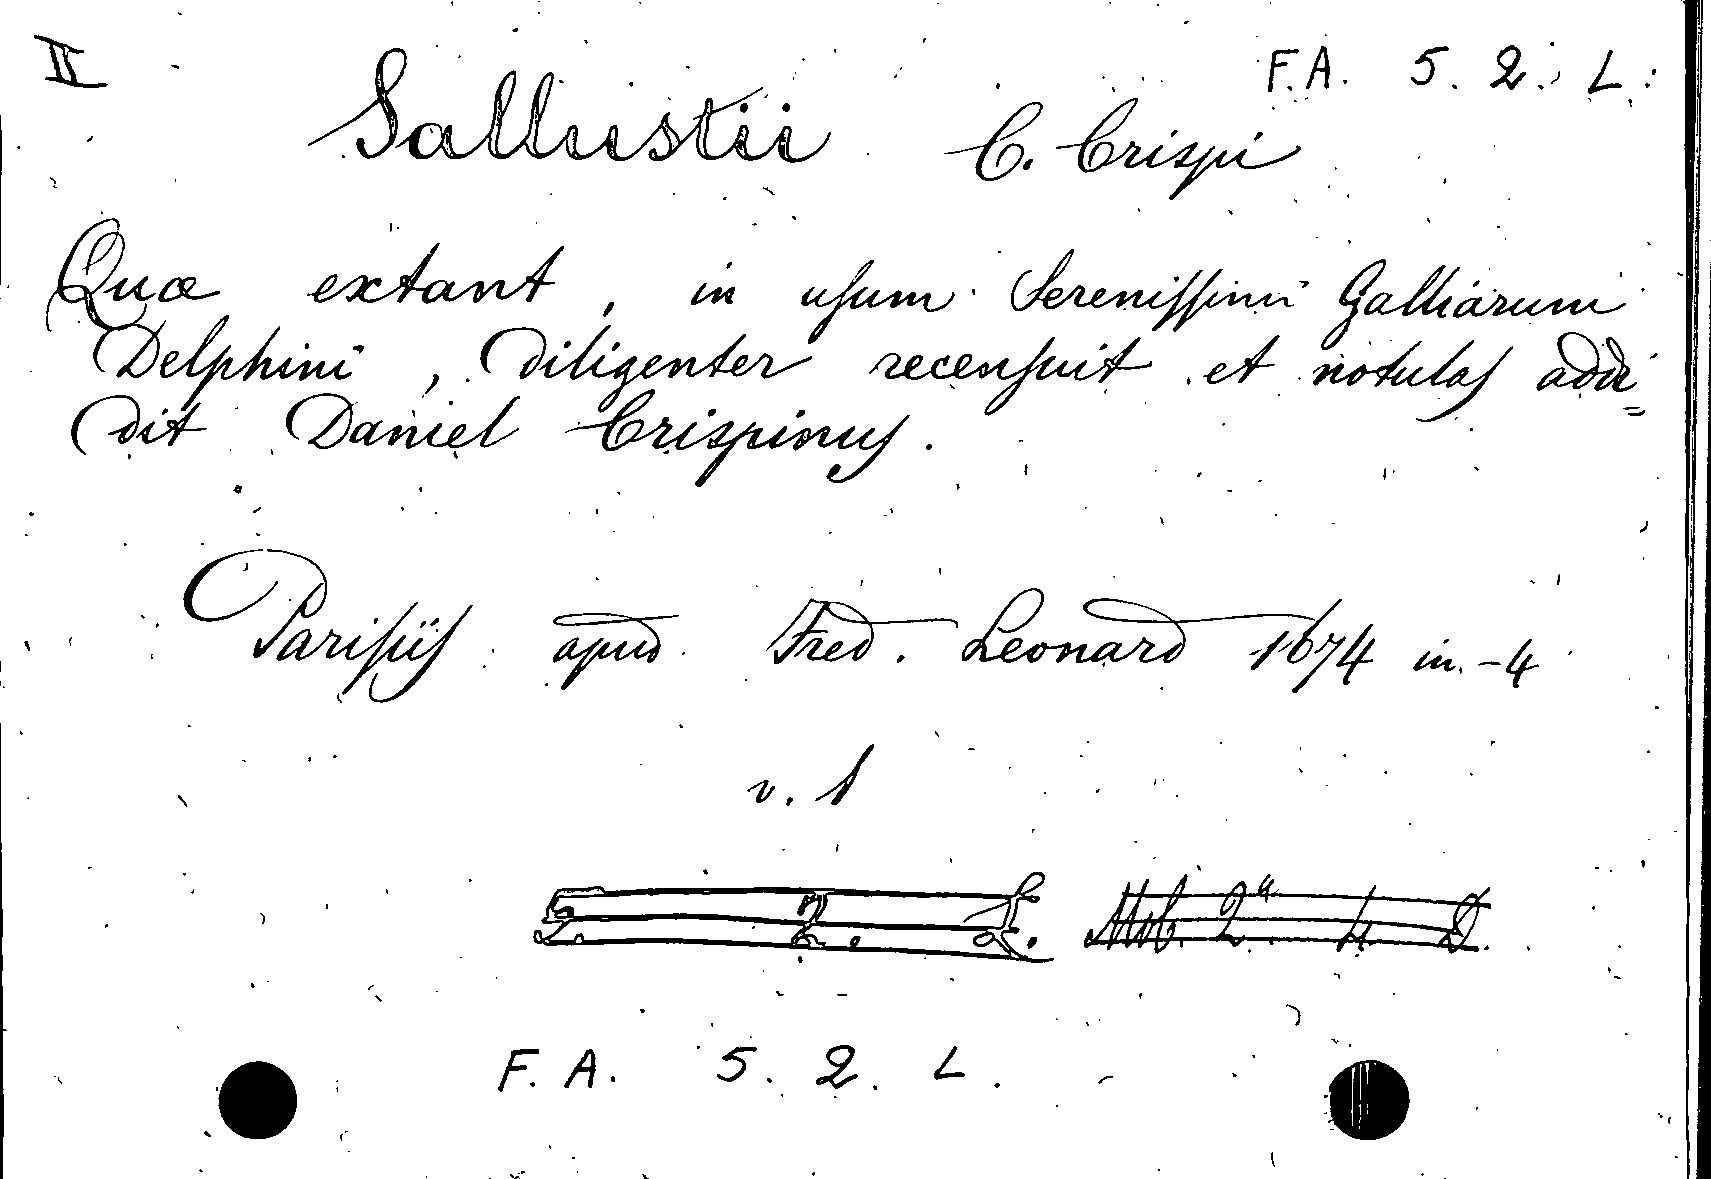 II
F.A. 5. 2. L.
Sallustii C. Crispi
Quæ extant, in usum Serenissimi Galliarum
Delphini, diligenter recensuit et notulas addi=
dit Daniel Crispinus.
Parisiis apud Fred. Leonard 1674 in-4
v. 1
Mob. 2a 4 D.
F. A. 5. 2. L.